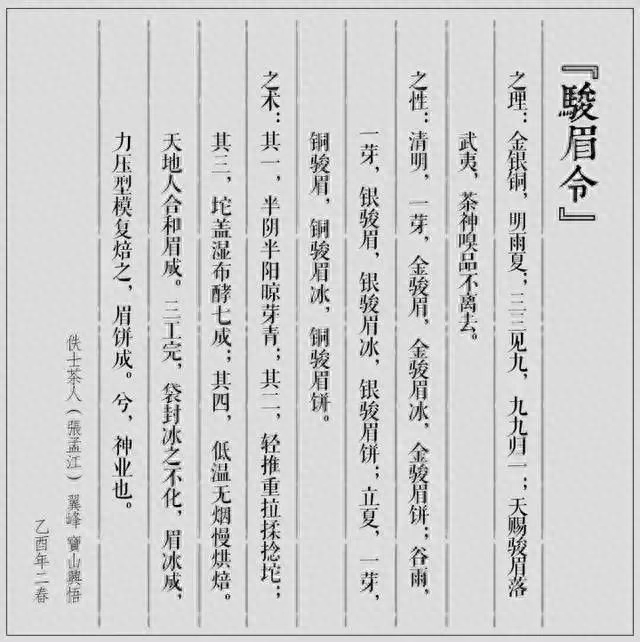 『駿眉令』
之理：金银铜，明雨夏；三三见九，九九归一；天赐骏眉落
武夷，茶神嗅品不离去。
之性：清明，一芽，金骏眉，金骏眉冰，金骏眉饼；谷雨，
一芽，银骏眉，银骏眉冰，银骏眉饼；立夏，一芽，
铜骏眉，铜骏眉冰，铜骏眉饼。
之术：其一，半阴半阳晾芽青；其二，轻推重拉揉捻坨；
其三，坨盖湿布酵七成；其四，低温无烟慢烘焙。
天地人合和眉成。三工完，袋封冰之不化，眉冰成，
力压型模复焙之，眉饼成。兮，神业也。
佚士茶人（張孟江）翼峰 寶山興悟
乙酉年二春